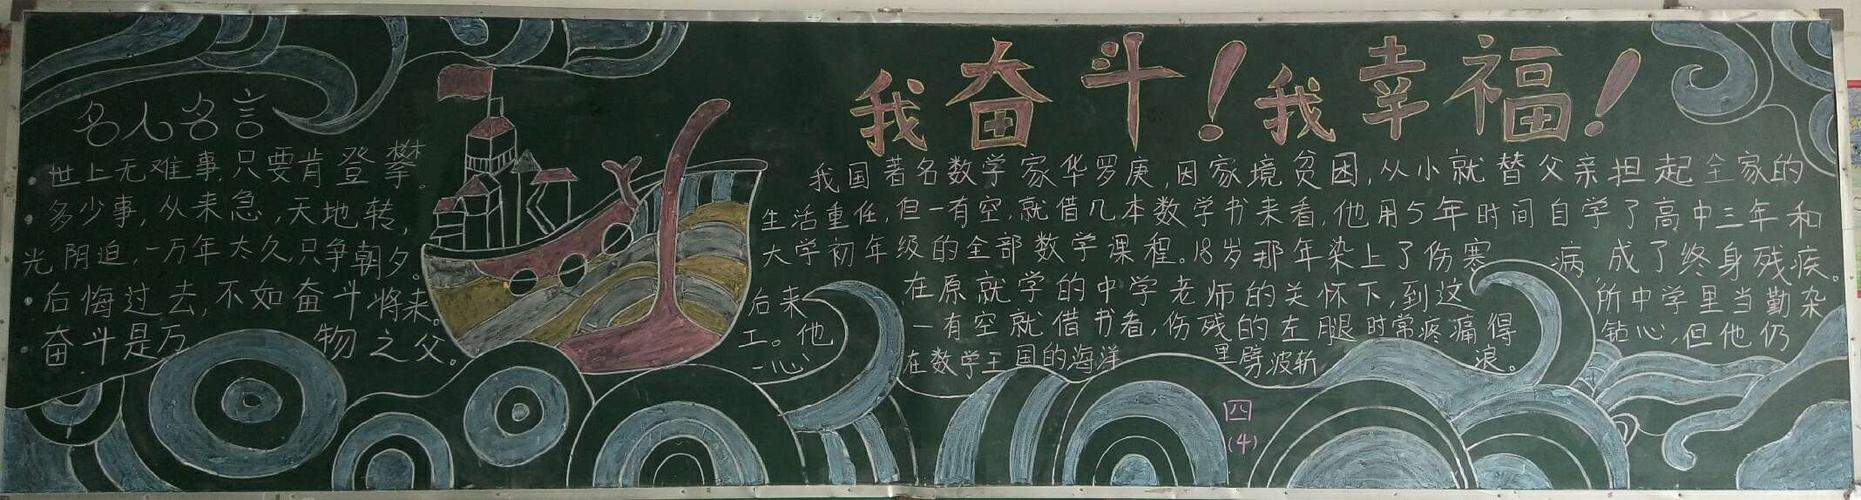 我奋斗！我幸福！
名人名言
世上无难事，只要肯登攀。
多少事，从来急，天地转，
光阴迫，一万年太久，只争朝夕。
后悔过去，不如奋斗将来。
奋斗是万物之父。
我国著名数学家华罗庚，因家境贫困，从小就替父亲担起全家的
生活重任，但一有空，就借几本数学书来看，他用5年时间自学了高中三年和
大学初年级的全部数学课程。18岁那年染上了伤寒病成了终身残疾。
后来在原就学的中学老师的关怀下，到这所中学里当勤杂
工。他一有空就借书看，伤残的左腿时常疼痛得钻心，但他仍
一心在数学王国的海洋里劈波斩浪。
四
(4)